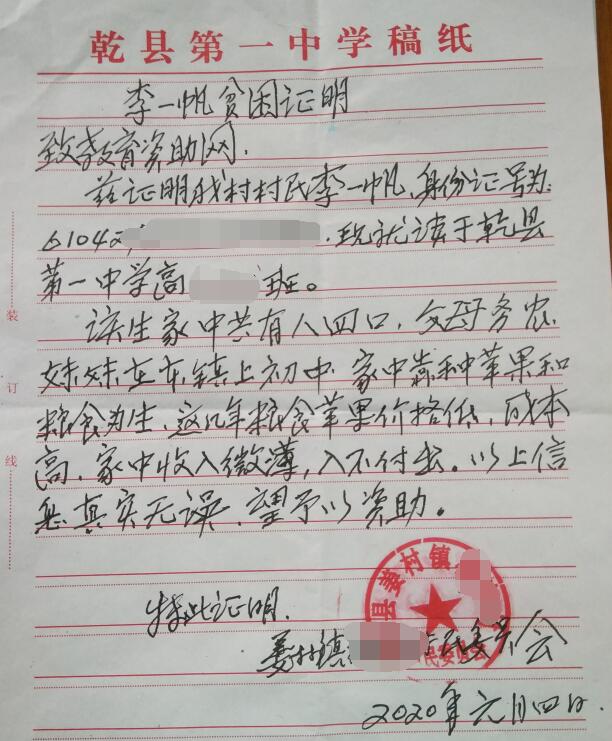 乾县第一中学稿纸
李一帆贫困证明
致教育资助网.
兹证明我村村民李一帆,身份证号为:
6104 .现就读于乾县
第一中学高 班。
该生家中共有人四口,父母务农
妹妹在本镇上初中.家中靠种苹果和
粮食为生,这几年粮食苹果价格低,成本
高,家中收入微薄,入不付出。以上信
息真实无误,望予以资助。
特此证明.
姜村镇 民委员会
2020年六月四日
装
订
线
县姜村镇
民委员会